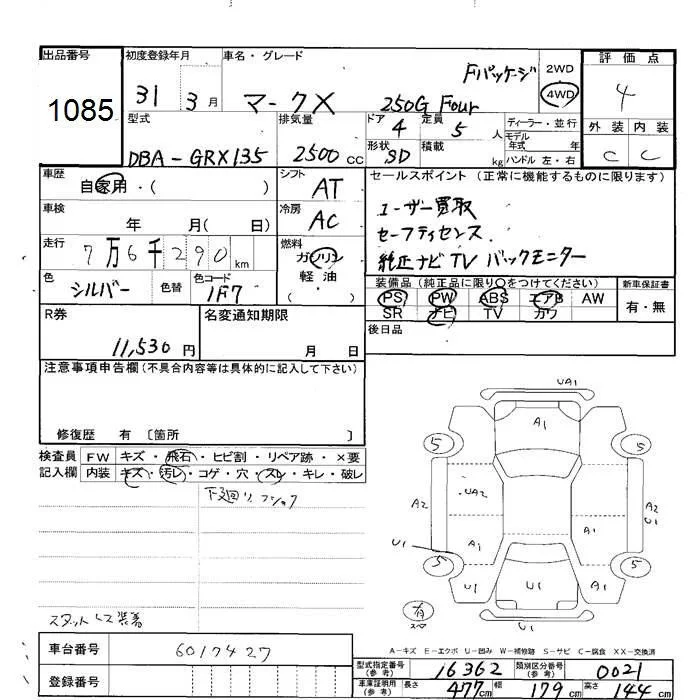 出品番号
1085
初度登録年月
31 3月
車名・グレード
マークX
Fパッケージ
250G Four
2WD
4WD
評価点
4
外装 内装
C C
型式
DBA-GRX135
排気量
2500 CC
ドア
4
定員
5 人
形状
SD
積載
kg
ディーラー・並行
モデル年式 年
ハンドル 左・右
車歴
自家用・( )
シフト
AT
車検
年 月( 日)
冷房
AC
走行
7万6千290km
燃料
ガソリン
軽油
( ・ )
色
シルバー
色替
色コード
1F7
セールスポイント (正常に機能するものに限ります)
ユーザー買取
セーフティセンス
純正ナビTVバックモニター
装備品(純正品に限り○をつけてください)
PS PW ABS エアB AW
SR ナビ TV カワ
新車保証書
有・無
後日品
R券
11,530円
名変通知期限
月 日
注意事項申告欄(不具合内容等は具体的に記入して下さい)
修復歴 有 〔箇所 〕
検査員記入欄
FW キズ・飛石・ヒビ割・リペア跡・×要
内装 キズ・汚レ・コゲ・穴・スレ・キレ・破レ
下廻り
スタットレス装着
UA1
A1
5
5
UA2
A2
A2
U1
U1
A1
A1
5
5
U1
U1
A1
U1
A-キズ E-エクボ U-凹み W-補修跡 S-サビ C-腐食 XX-交換済
車台番号
6017427
登録番号
型式指定番号(参考)
16362
類別区分番号(参考)
0021
車庫証明用(参考)
長さ 477cm 幅 179cm 高さ 144cm